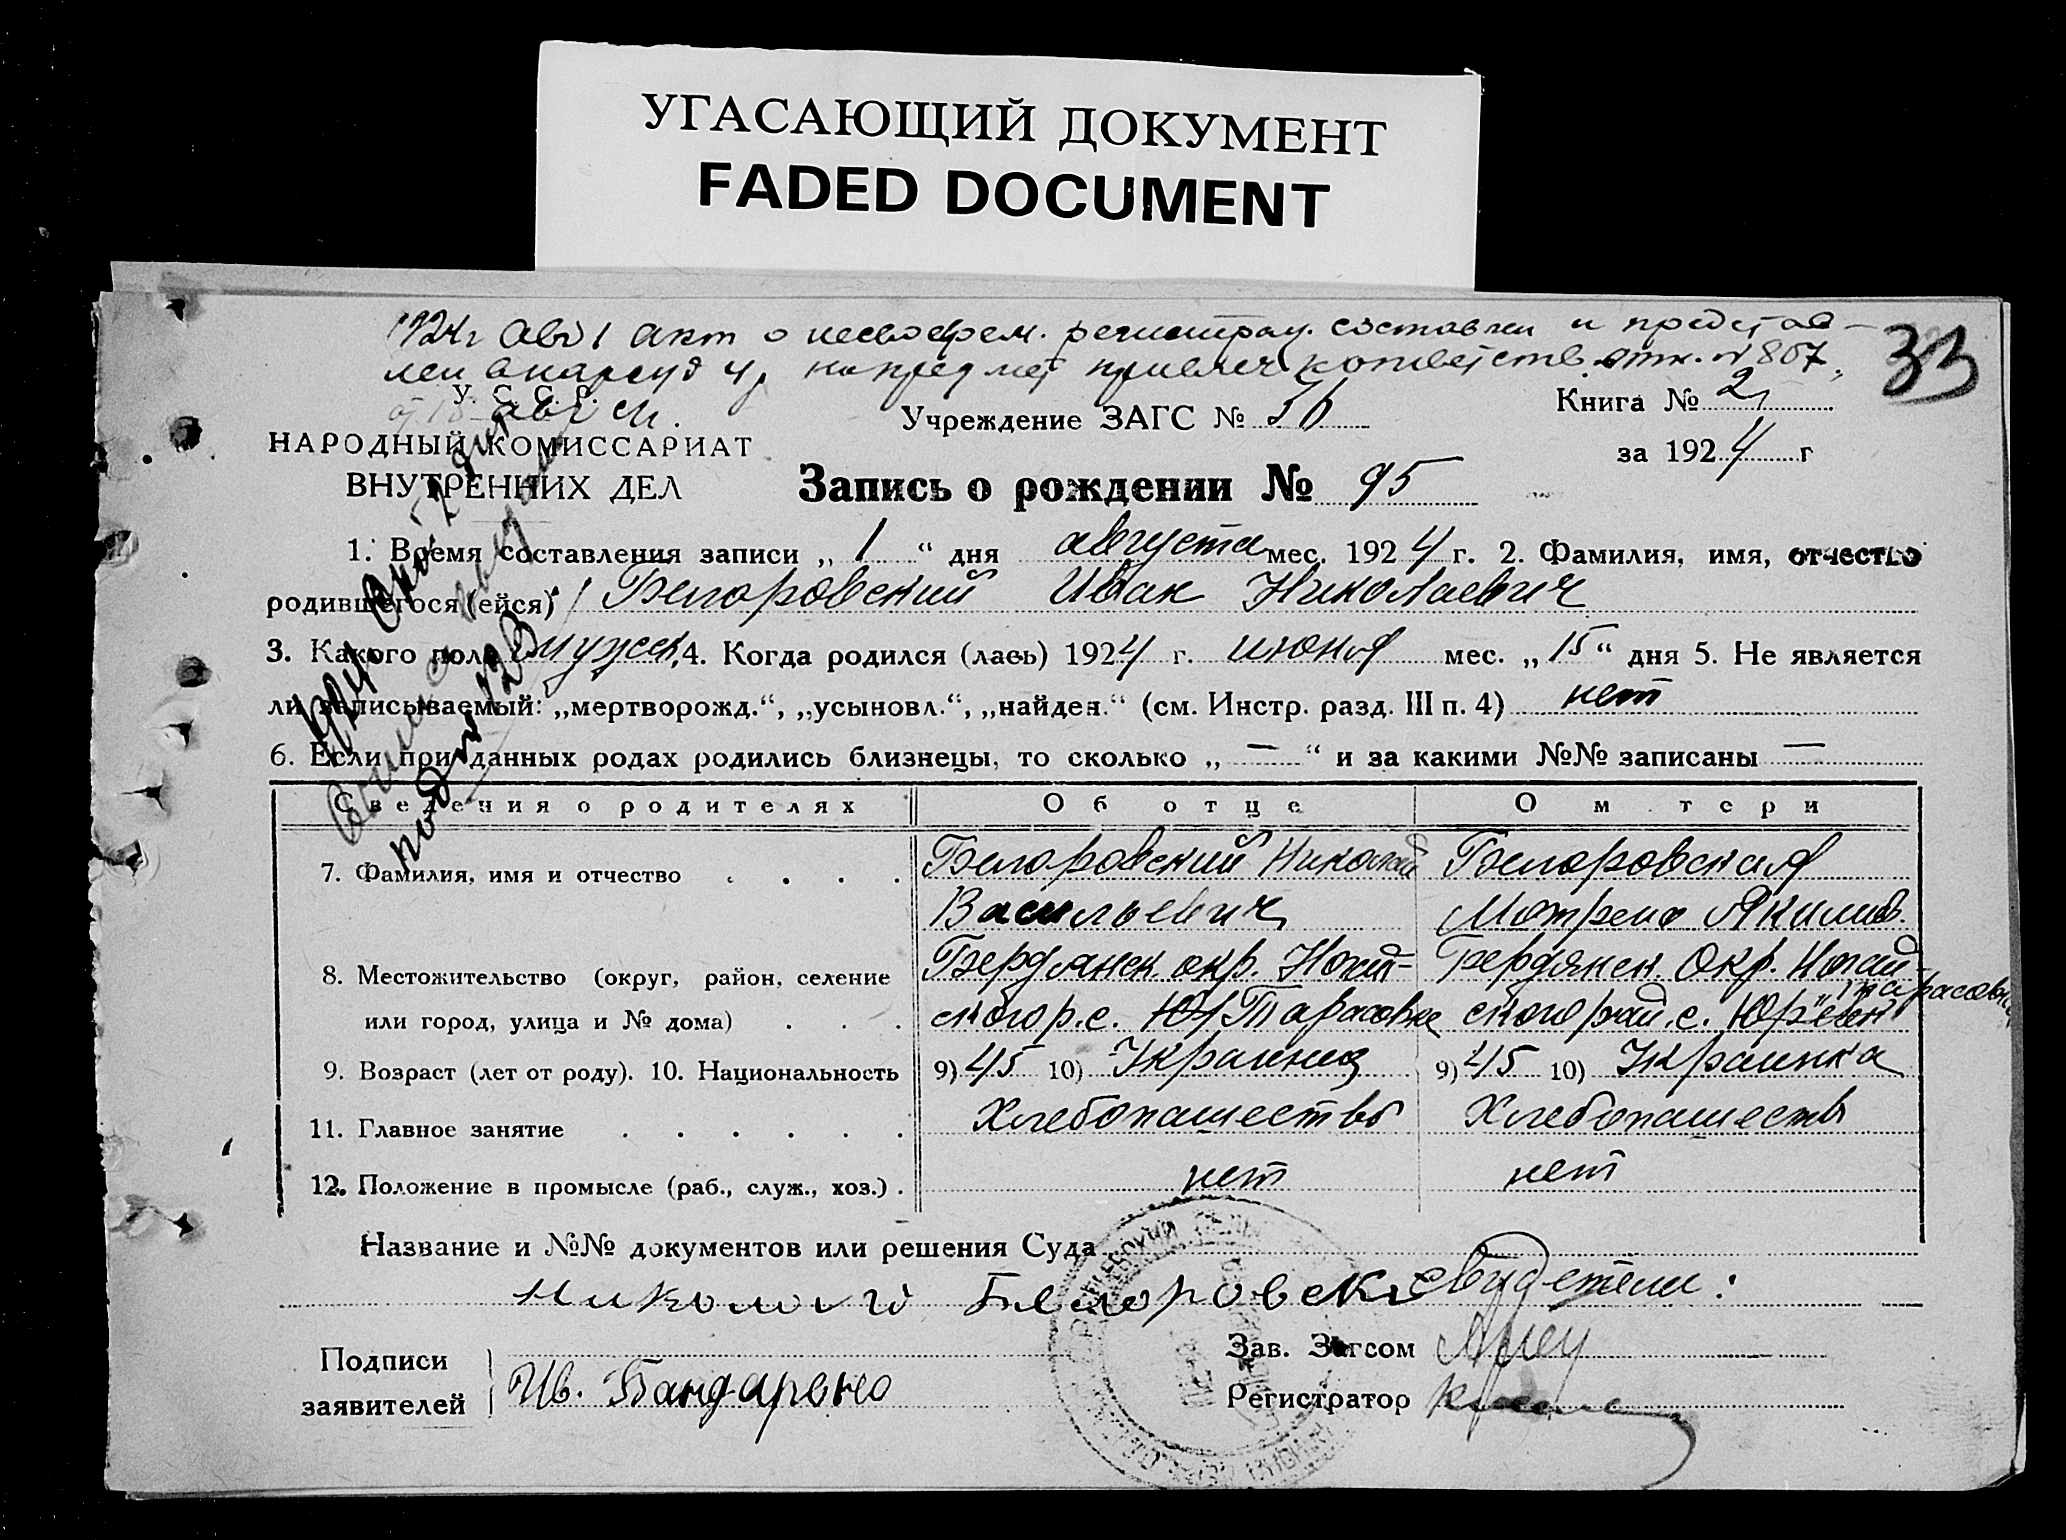 УГАСАЮЩИЙ ДОКУМЕНТ
FADED DOCUMENT
1924 г Авг 1 акт о несвоеврем. регистрац. составлен и представ-
лен в нарсуд 4, на предмет привлеч к ответств. отн. № 867,
33
У. С. С. Р.
НАРОДНЫЙ КОМИССАРИАТ
ВНУТРЕННИХ ДЕЛ
Учреждение ЗАГС №
Книга № 2
за 1924 г
Запись о рождении № 95
1. Время составления записи „ 1 “ дня августа мес. 1924 г. 2. Фамилия, имя, отчество
родившегося (ейся) Белоровский Иван Николаевич
3. Какого пола мужск. 4. Когда родился (лась) 1924 г. июня мес. „ 15 “ дня 5. Не является
ли записываемый: „мертворожд.“, „усыновл.“, „найден.“ (см. Инстр. разд. III п. 4) нет
6. Если при данных родах родились близнецы, то сколько „ — “ и за какими №№ записаны —
Сведения о родителях Об отце О м тери
7. Фамилия, имя и отчество . . . . Белоровский Николай Белоровская
Васильевич Мотрена Акимов.
8. Местожительство (округ, район, селение Бердянск. окр. Ногай- Бердянск. Окр. Ногай-
или город, улица и № дома) . . . ского р. с. Тарасовке ского рай. с. Тарасовк
9. Возраст (лет от роду). 10. Национальность 9) 45 10) Украинец 9) 45 10) Украинка
11. Главное занятие . . . . . . Хлебопашество Хлебопашеств
12. Положение в промысле (раб., служ., хоз.) . нет нет
Название и №№ документов или решения Суда
Белоровск Свидетели:
Подписи
заявителей
Ив. Бандарено
Зав. Загсом
Регистратор